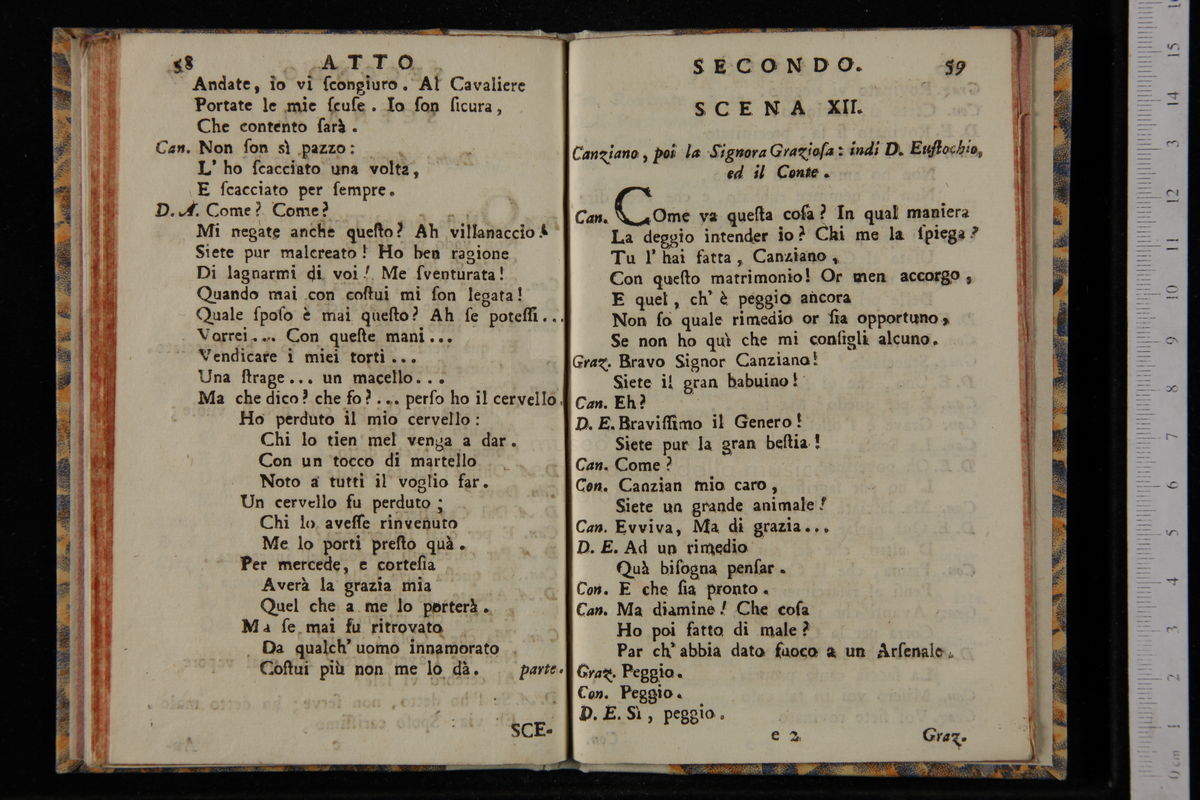 58 ATTO
Andate, io vi ſcongiuro. Al Cavaliere
Portate le mie ſcuſe. Io ſon ſicura,
Che contento ſarà.
Can. Non ſon sì pazzo:
L' ho ſcacciato una volta,
E ſcacciato per ſempre.
D. A. Come? Come?
Mi negate anche queſto? Ah villanaccio!
Siete pur malcreato! Ho ben ragione
Di lagnarmi di voi! Me ſventurata!
Quando mai con coſtui mi ſon legata!
Quale ſpoſo è mai queſto? Ah ſe poteſſi...
Vorrei... Con queſte mani...
Vendicare i miei torti...
Una ſtrage... un macello...
Ma che dico? che fo?... perſo ho il cervello.
Ho perduto il mio cervello:
Chi lo tien mel venga a dar.
Con un tocco di martello
Noto a tutti il voglio far.
Un cervello fu perduto;
Chi lo aveſſe rinvenuto
Me lo porti preſto quà.
Per mercede, e corteſia
Averà la grazia mia
Quel che a me lo porterà.
Ma ſe mai fu ritrovato
Da qualch' uomo innamorato
Coſtui più non me lo dà. parte.
SCE-
SECONDO. 59
SCENA XII.
Canziano, poi la Signora Grazioſa: indi D. Euſtochio,
ed il Conte.
Can. COme va queſta coſa? In qual maniera
La deggio intender io? Chi me la ſpiega?
Tu l' hai fatta, Canziano,
Con queſto matrimonio! Or men accorgo,
E quel, ch' è peggio ancora
Non ſo quale rimedio or ſia opportuno,
Se non ho quì che mi conſigli alcuno.
Graz. Bravo Signor Canziano!
Siete il gran babuino!
Can. Eh?
D. E. Braviſſimo il Genero!
Siete pur la gran beſtia!
Can. Come?
Con. Canzian mio caro,
Siete un grande animale!
Can. Evviva, Ma di grazia...
D. E. Ad un rimedio
Quà biſogna penſar.
Con. E che ſia pronto.
Can. Ma diamine! Che coſa
Ho poi fatto di male?
Par ch' abbia dato fuoco a un Arſenale.
Graz. Peggio.
Con. Peggio.
D. E. Sì, peggio.
e 2 Graz.
0 cm 1 2 3 4 5 6 7 8 9 10 11 12 13 14 15 16